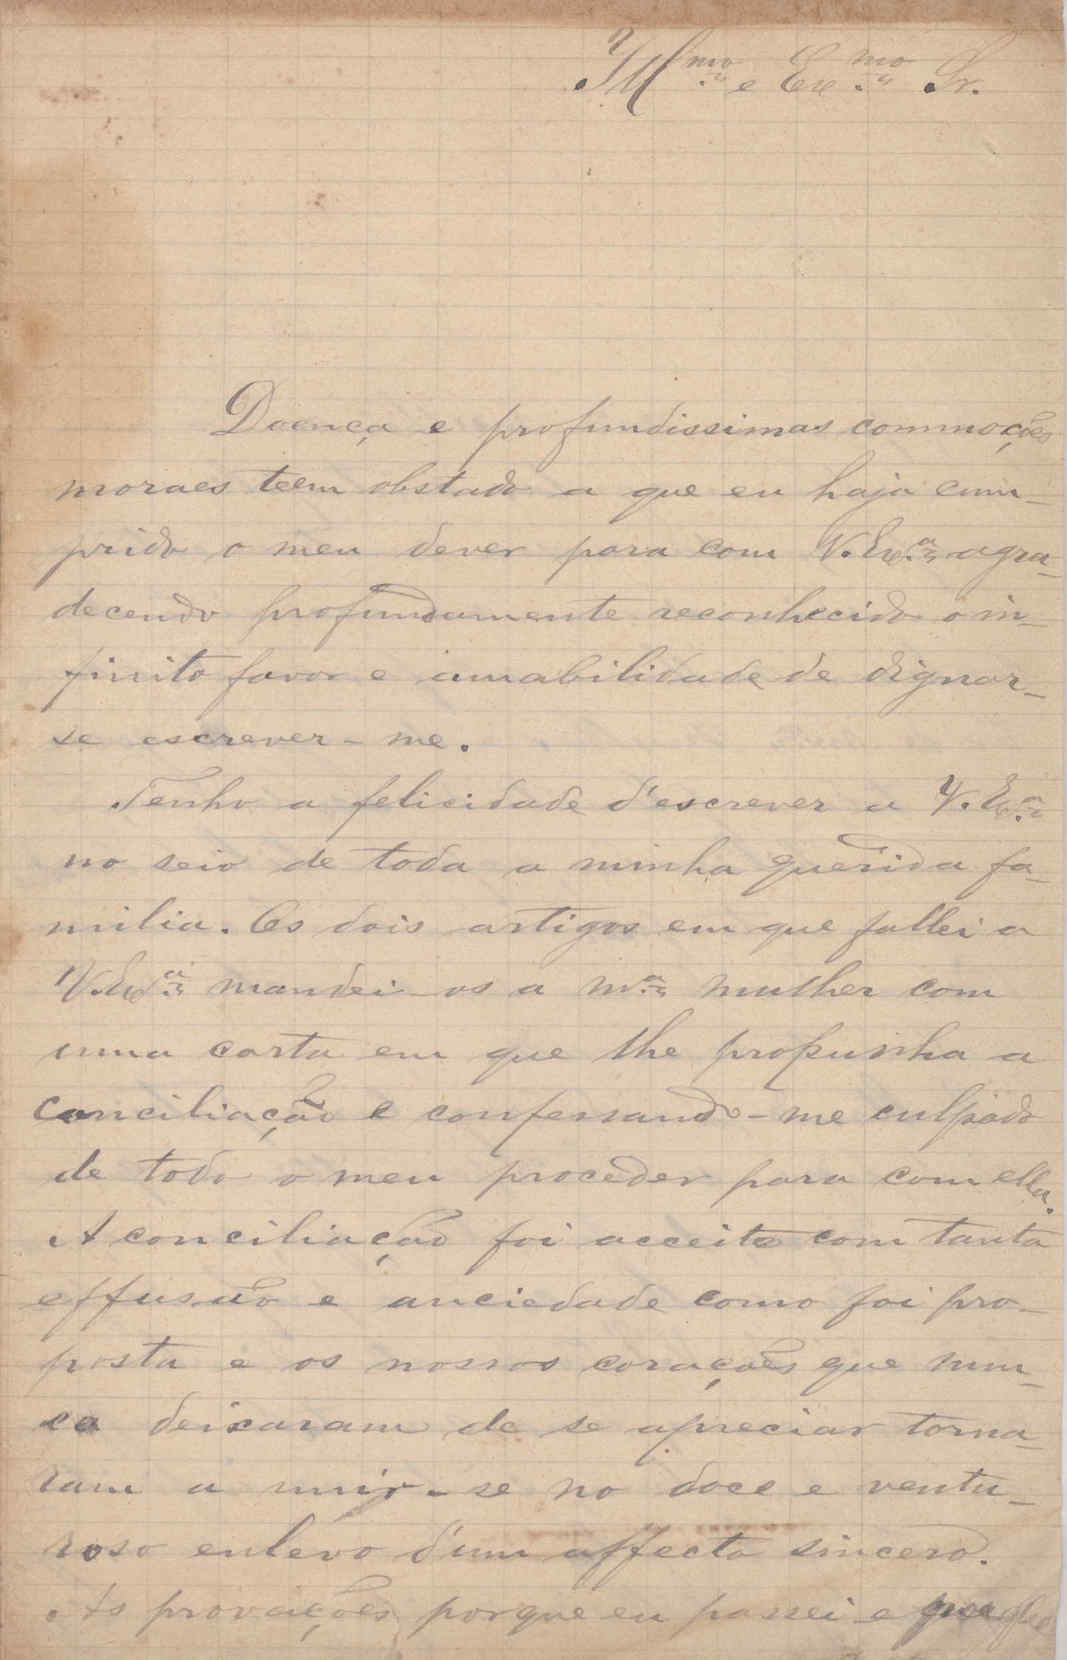 Ill.mo e Ex.mo Sr.
Doença e profundissimas commoções
moraes teem obstado a que eu haja cum-
prido o meu dever para com V. Ex.a agra-
decendo profundamente reconhecido o in-
finito favor e amabilidade de dignar-
se escrever-me.
Tenho a felicidade d'escrever a V. Ex.a
no seio de toda a minha querida fa-
milia. Os dois artigos em que fallei a
V. Ex.a mandei-os a m.a mulher com
uma carta em que lhe propunha a
conciliação e confessando-me culpado
de todo o meu proceder para com ella.
A conciliação foi acceite com tanta
effusão e anciedade como foi pro-
posta e os nossos corações que nun-
ca deixaram de se apreciar torna-
ram a unir-se no doce e ventu-
roso enlevo d'um affecto sincero.
As provações porque eu passei e